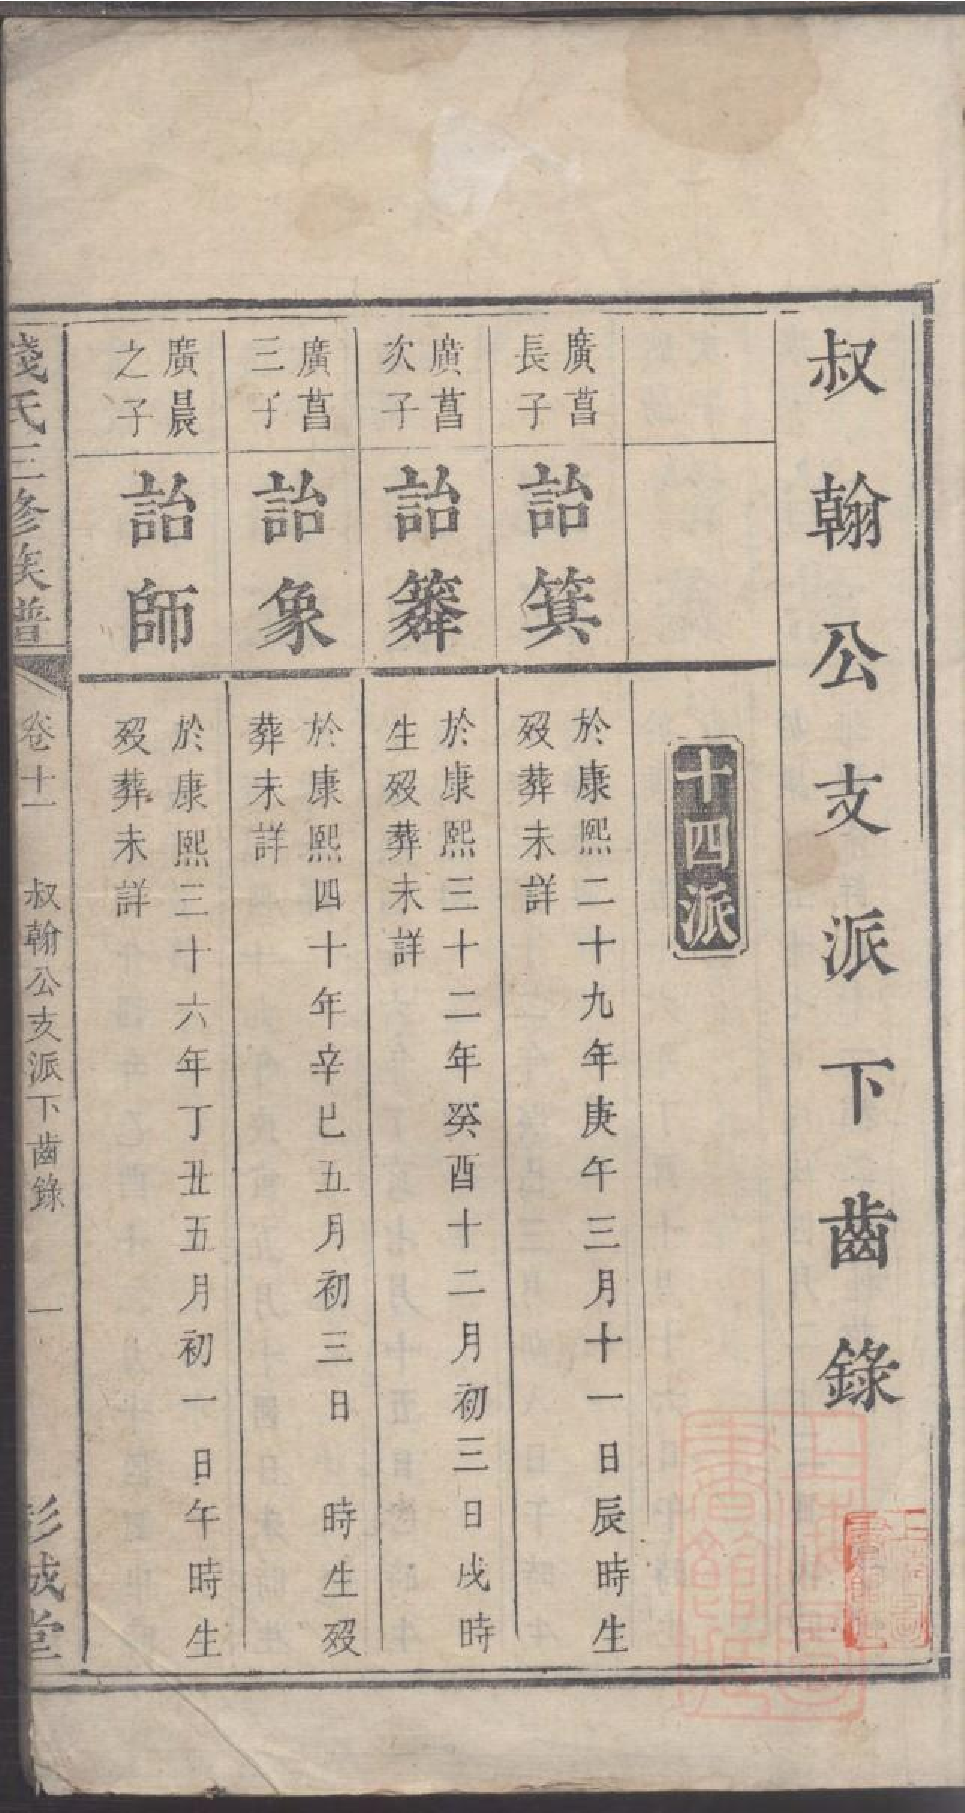 叔翰公支派下齒錄
十四派
廣菖
長子
詒箕
於康熙二十九年庚午三月十一日辰時生
歿葬未詳
廣菖
次子
詒簳
於康熙三十二年癸酉十二月初三日戌時
生歿葬未詳
廣菖
三子
詒象
於康熙四十年辛巳五月初三日　時生歿
葬未詳
廣晨
之子
詒師
於康熙三十六年丁丑五月初一日午時生
歿葬未詳
錢氏三修族譜
卷十一
叔翰公支派下齒錄
一
彭城堂